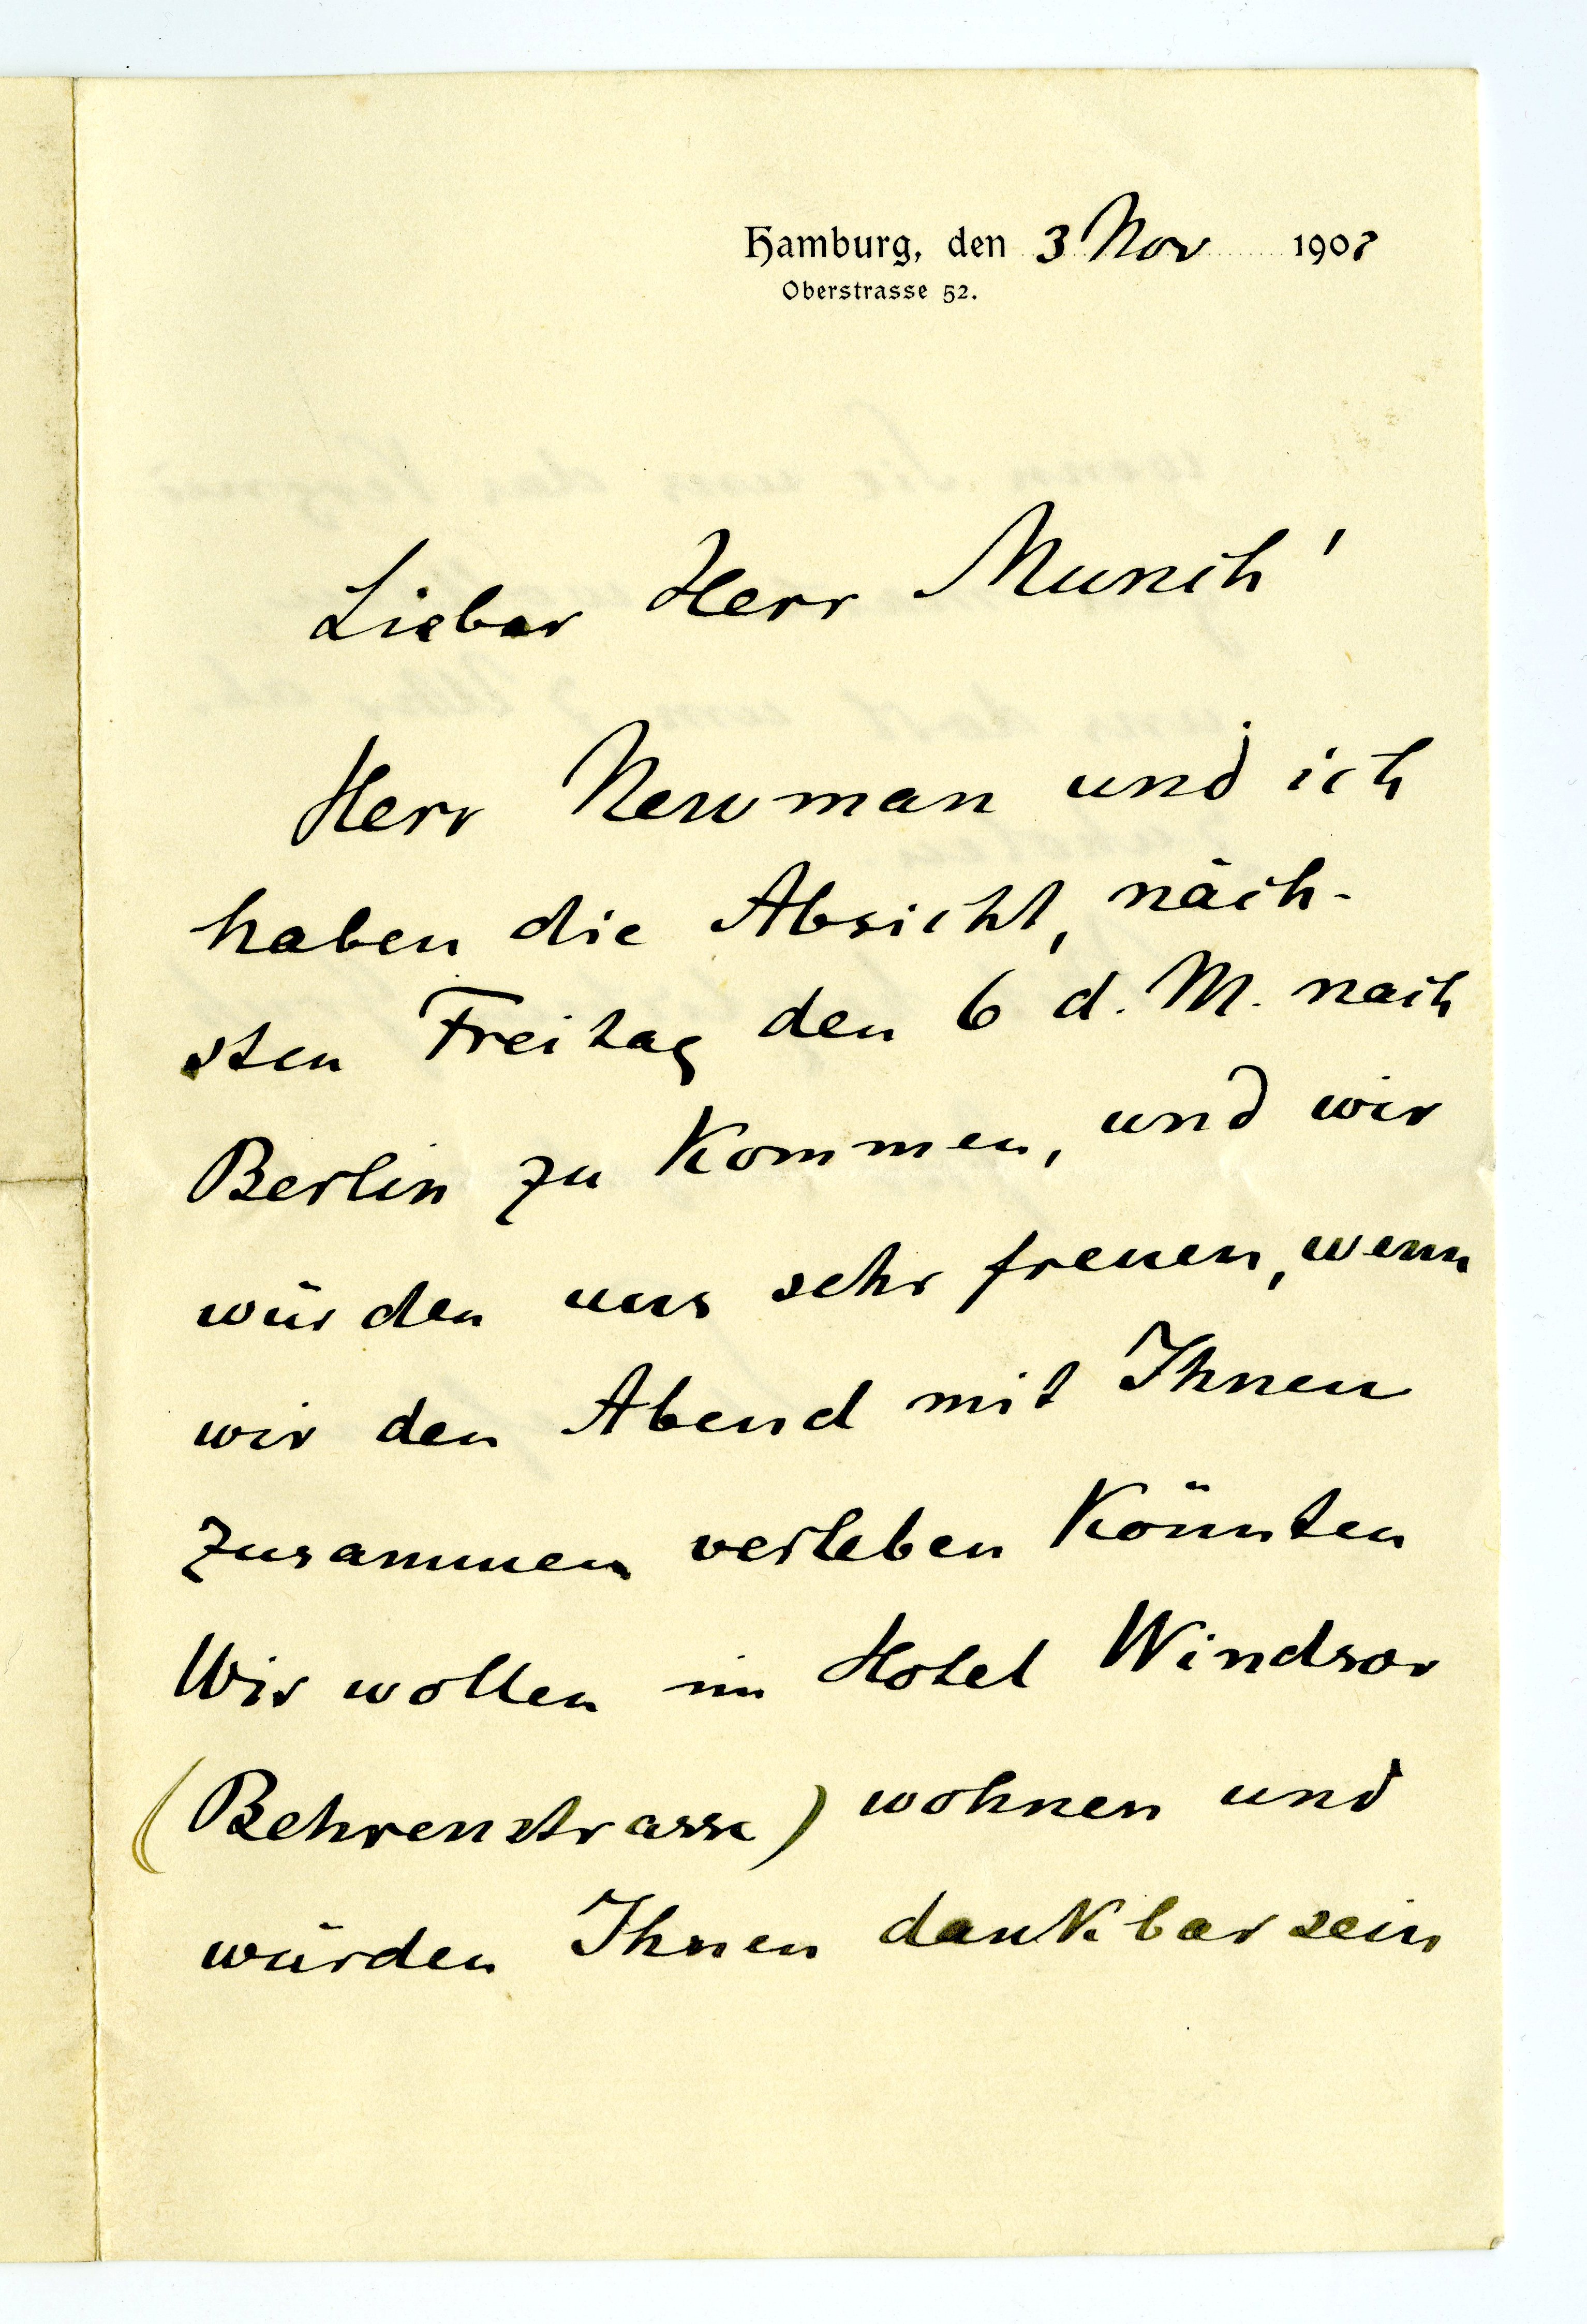 Hamburg, den 3 Nov 1903
Oberstrasse 52.
Lieber Herr Munch!
Herr Newman und ich
haben die Absicht, näch-
sten Freitag den 6 d. M. nach
Berlin zu kommen, und wir
würden uns sehr freuen, wenn
wir den Abend mit Ihnen
zusammen verleben könnten
Wir wollen im Hotel Windsor
(Behrenstrasse) wohnen und
würden Ihnen dankbar sein